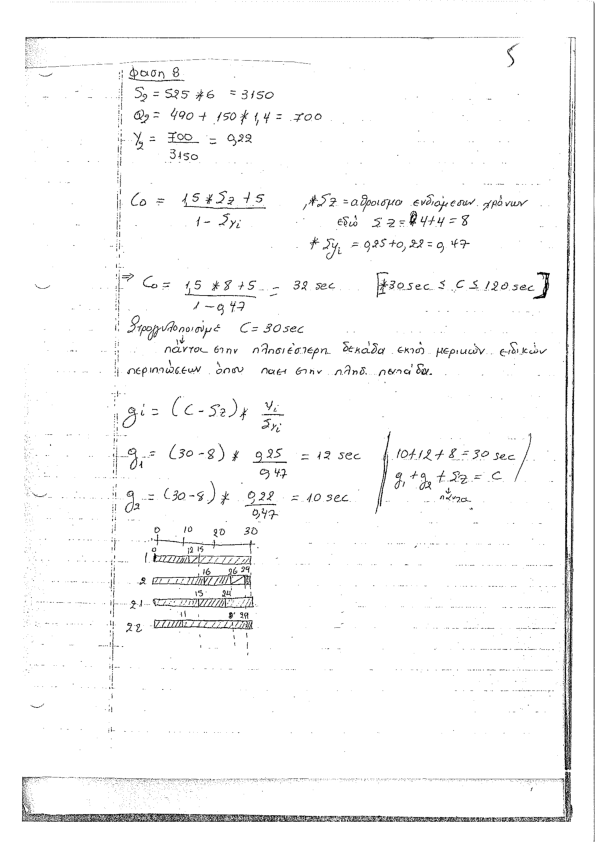 5
Φαση 8
S2 = 525 *6 = 3150
Q2 = 490 + 150 * 1,4 = 700
Y2 = 700 / 3150 = 0,22
Co = 1,5 * Σz + 5 / 1 - Σyi , *Σz = αθροισμα ενδιάμεσων χρόνων
εδώ Σz = 4+4 = 8
* Σyi = 0,25+0,22 = 0,47
⇒ Co = 1,5 * 8 + 5 / 1 - 0,47 = 32 sec [*30 sec ≤ C ≤ 120 sec]
Στρογγυλοποιούμε C = 30 sec
πάντα στην πλησιέστερη δεκάδα εκτός μερικών ειδικών
περιπτώσεων όπου παει στην πλησ. πεντάδα.
gi = (C - Σz) * yi / Σyi
g1 = (30 - 8) * 0,25 / 0,47 = 12 sec
10+12+8 = 30 sec
g1 + g2 + Σz = C
πάντα
g2 = (30-8) * 0,22 / 0,47 = 10 sec
0 10 20 30
0 12 15
1
16 26 29
2
15 24
21
11 29
22